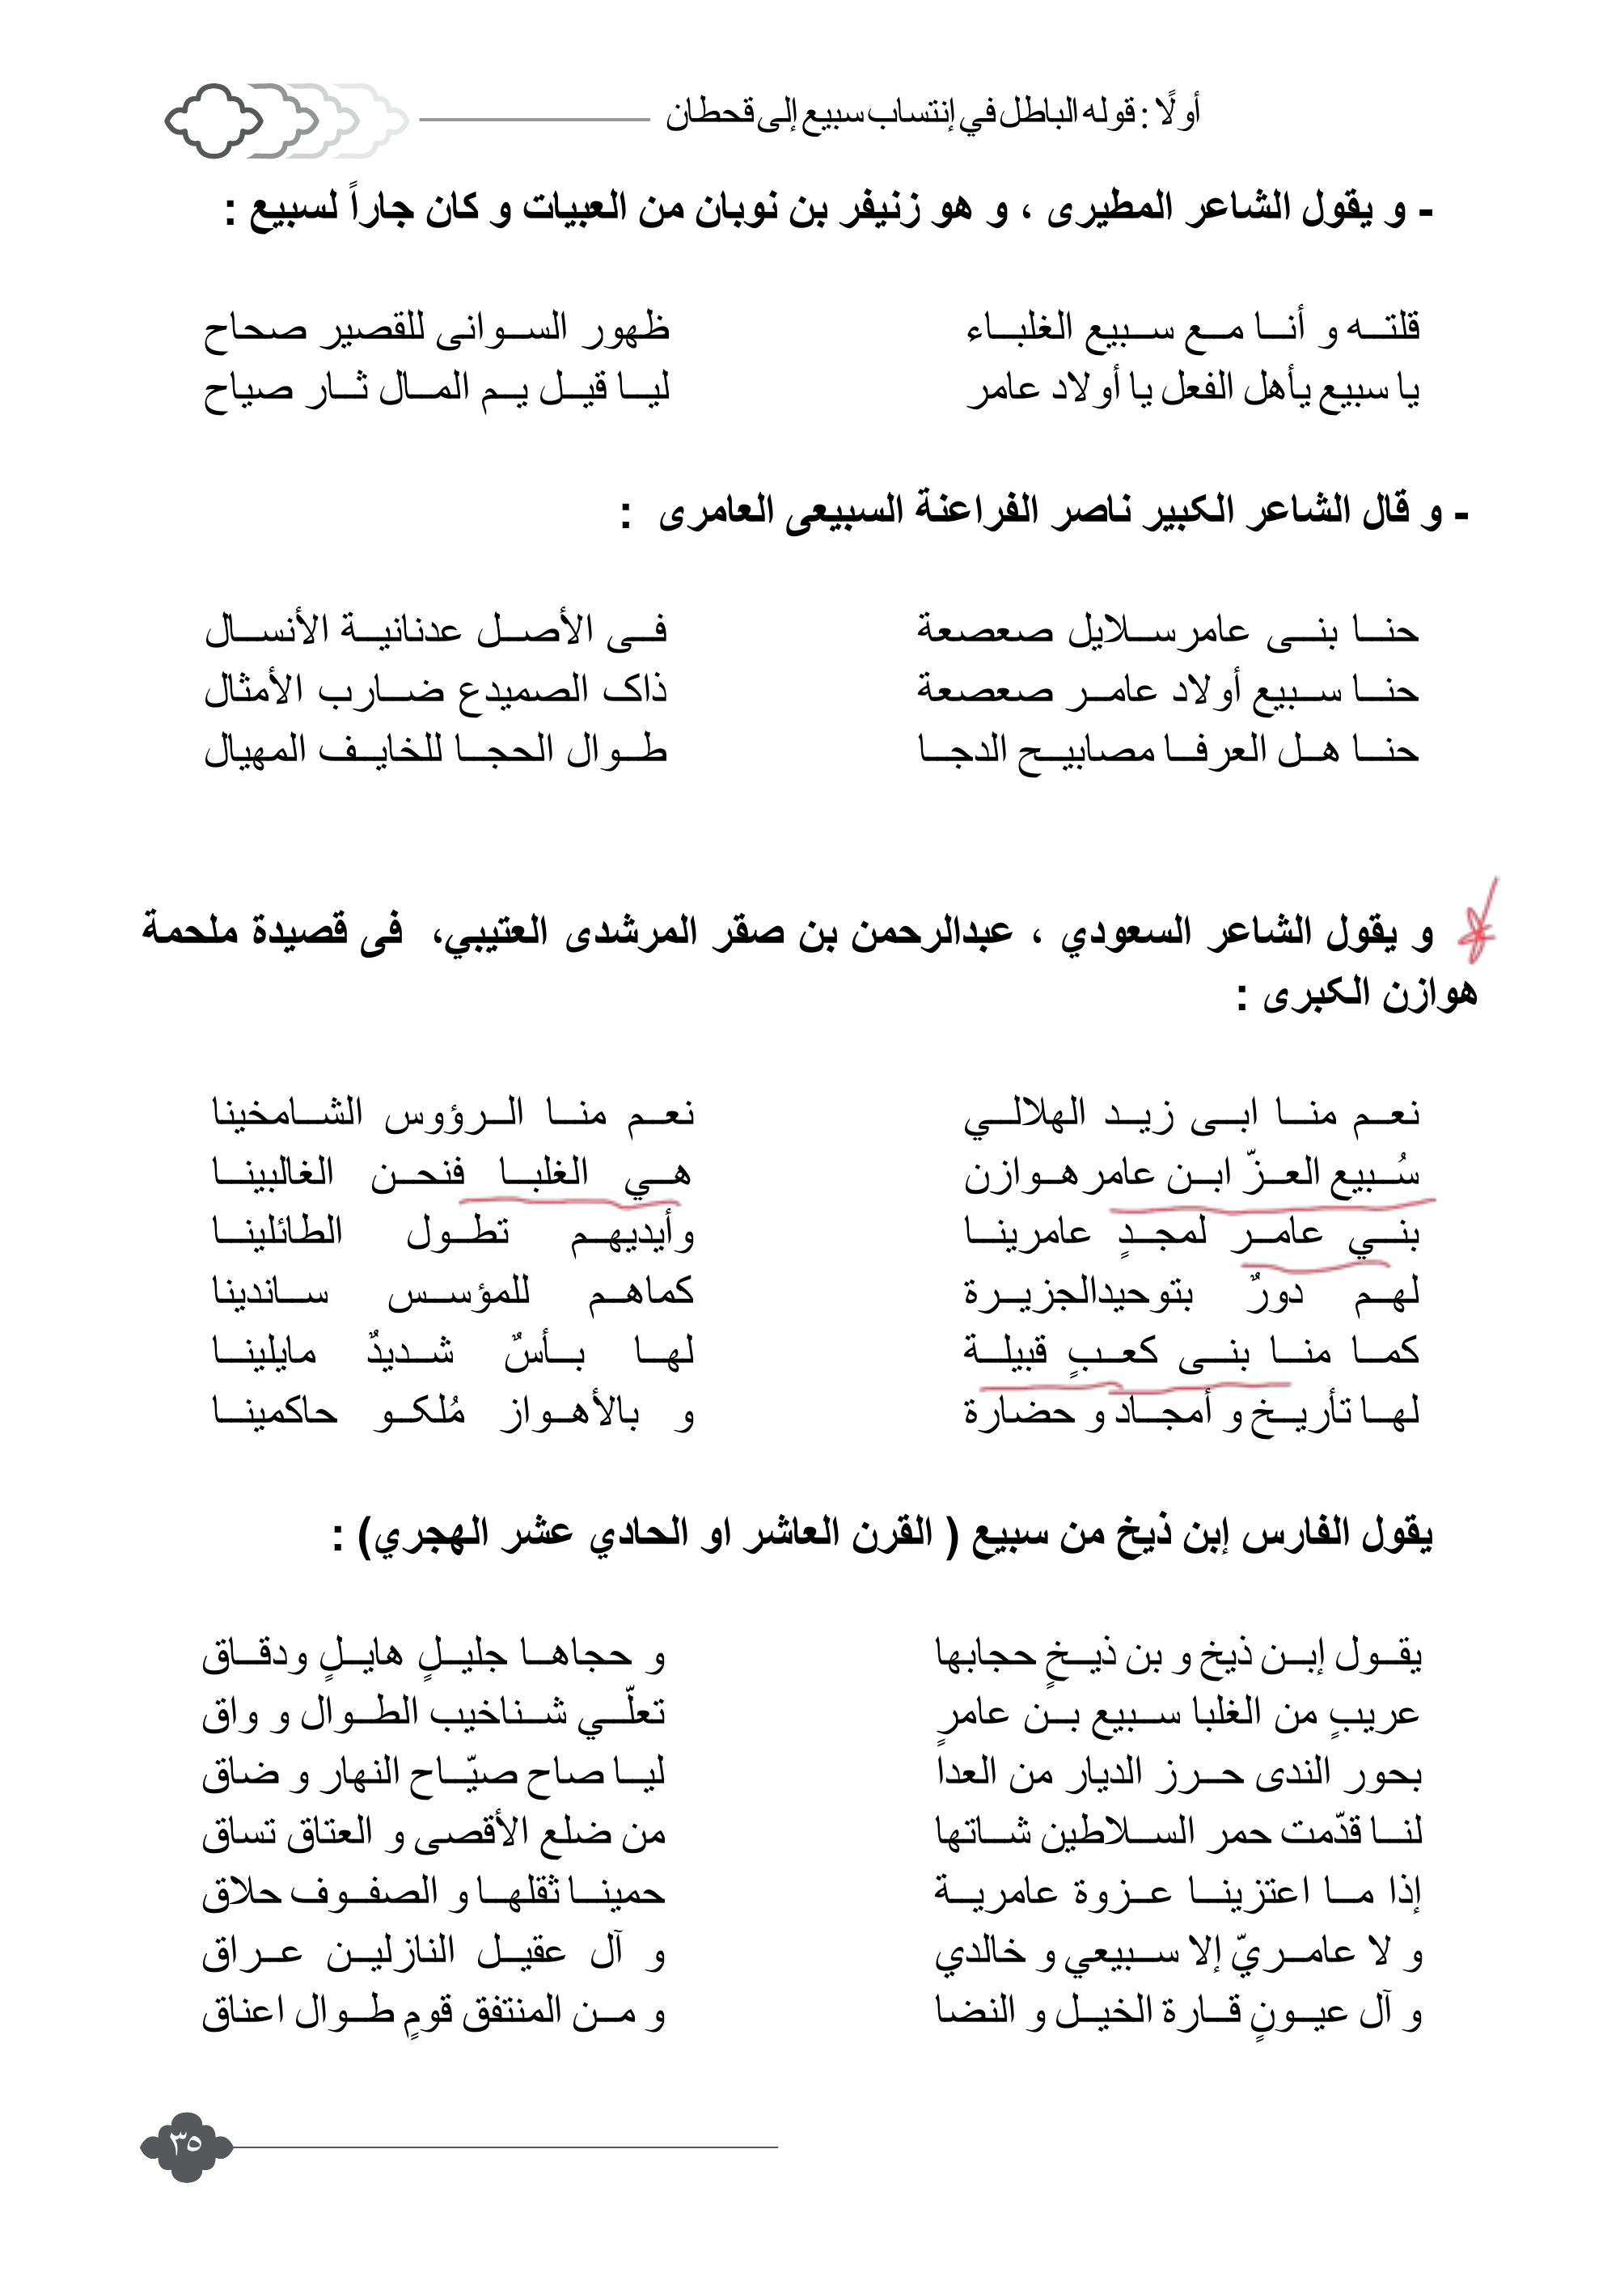 أولًا : قوله الباطل في إنتساب سبيع إلى قحطان
- و يقول الشاعر المطيرى ، و هو زنيفر بن نوبان من العبيات و كان جاراً لسبيع :
قلتـــه و أنـــا مـــع ســـبيع الغلبـــاء ظهور الســـوانى للقصير صحاح
يا سبيع يأهل الفعل يا أولاد عامر ليـــا قيـــل يـــم المـــال ثـــار صياح
- و قال الشاعر الكبير ناصر الفراعنة السبيعى العامرى :
حنـــا بنـــى عامرســـلايل صعصعة فـــى الأصـــل عدنانيـــة الأنســـال
حنـــا ســـبيع أولاد عامـــر صعصعة ذاك الصميدع ضـــارب الأمثال
حنـــا هـــل العرفـــا مصابيـــح الدجـــا طـــوال الحجـــا للخايـــف المهيال
و يقول الشاعر السعودي ، عبدالرحمن بن صقر المرشدى العتيبي، فى قصيدة ملحمة
هوازن الكبرى :
نعـــم منـــا ابـــى زيـــد الهلالـــي نعـــم منـــا الـــرؤوس الشـــامخينا
سُـــبيع العـــزّ ابـــن عامر هـــوازن هـــي الغلبـــا فنحـــن الغالبينـــا
بنـــي عامـــر لمجـــدٍ عامرينـــا وأيديهـــم تطـــول الطائلينـــا
لهـــم دورٌ بتوحيدالجزيـــرة كماهـــم للمؤســـس ســـاندينا
كمـــا منـــا بنـــى كعـــبٍ قبيلـــة لهـــا بـــأسٌ شـــديدٌ مايلينـــا
لهـــا تأريـــخ و أمجـــاد و حضارة و بالأهـــواز مُلكـــو حاكمينـــا
يقول الفارس إبن ذيخ من سبيع ( القرن العاشر او الحادي عشر الهجري) :
يقـــول إبـــن ذيخ و بن ذيـــخٍ حجابها و حجاهـــا جليـــلٍ هايـــلٍ ودقـــاق
عريبٍ من الغلبا ســـبيع بـــن عامرٍ تعلّـــي شـــناخيب الطـــوال و واق
بحور الندى حـــرز الديار من العدا ليـــا صاح صيّـــاح النهار و ضاق
لنـــا قدّمت حمر الســـلاطين شـــاتها من ضلع الأقصى و العتاق تساق
إذا مـــا اعتزينـــا عـــزوة عامريـــة حمينـــا ثقلهـــا و الصفـــوف حلاق
و لا عامـــريّ إلا ســـبيعي و خالدي و آل عقيـــل النازليـــن عـــراق
و آل عيـــونٍ قـــارة الخيـــل و النضا و مـــن المنتفق قومٍ طـــوال اعناق
٣٥